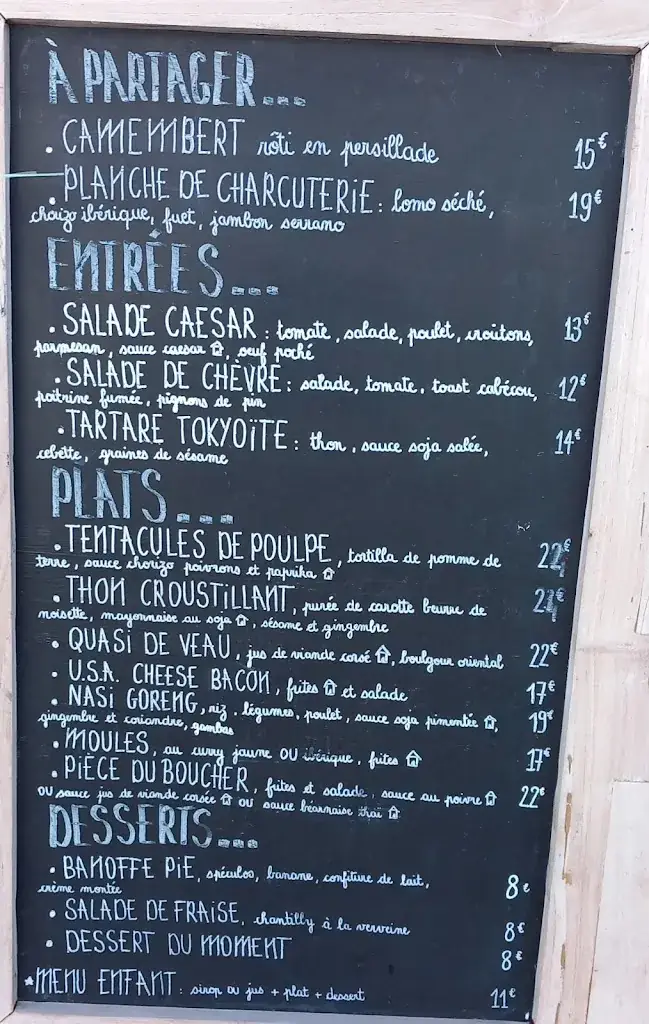 À PARTAGER...
. CAMEMBERT rôti en persillade 15€
. PLANCHE DE CHARCUTERIE : lomo séché, 19€
chorizo ibérique, fuet, jambon serrano
ENTRÉES...
. SALADE CAESAR : tomate, salade, poulet, croûtons, 13€
parmesan, sauce caesar, oeuf poché
. SALADE DE CHÈVRE : salade, tomate, toast cabécou, 12€
poitrine fumée, pignons de pin
. TARTARE TOKYOÏTE : thon, sauce soja salée, 14€
cebette, graines de sésame
PLATS...
. TENTACULES DE POULPE, tortilla de pomme de 22€
terre, sauce chorizo poivrons et paprika
. THON CROUSTILLANT, purée de carotte beurre de €
noisette, mayonnaise au soja, sésame et gingembre
. QUASI DE VEAU, jus de viande corsé, boulgour oriental 22€
. U.S.A. CHEESE BACON, frites et salade 17€
. NASI GORENG, riz, légumes, poulet, sauce soja pimentée, 19€
gingembre et coriandre, gambas
. MOULES, au curry jaune OU ibérique, frites 17€
. PIÈCE DU BOUCHER, frites et salade, sauce au poivre 22€
OU sauce jus de viande corsée OU sauce béarnaise thaï
DESSERTS...
. BANOFFE PIE, spéculos, banane, confiture de lait, 8€
crème montée
. SALADE DE FRAISE, chantilly à la verveine 8€
. DESSERT DU MOMENT 8€
*MENU ENFANT : sirop ou jus + plat + dessert 11€